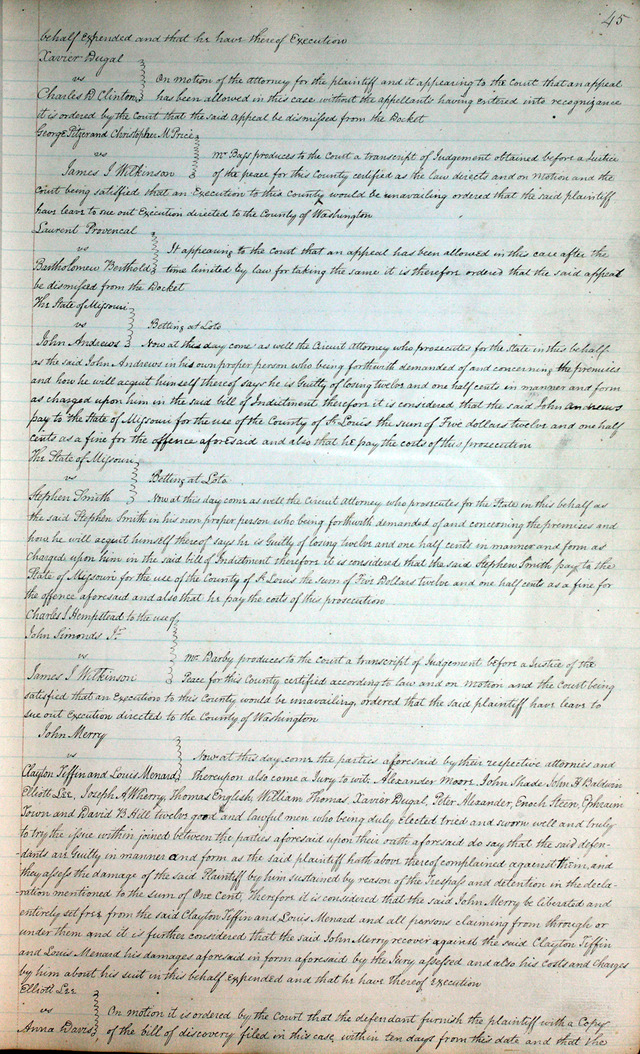 45
behalf expended and that he have thereof Execution
Xavier Dugal
vs
On motion of the attorney for the plaintiff and it appearing to the Court that an appeal
Charles D Clinton
has been allowed in this case without the appellants having entered into recognizance
it is ordered by the Court that the said appeal be dismissed from the Docket
George Pitzer and Christopher M Price
vs
Mr Bass produces to the Court a transcript of Judgement obtained before a Justice
James I Wilkinson
of the peace for this County certified as the law directs and on motion and the
Court being satisfied that an Execution to this County would be unavailing ordered that the said plaintiff
have leave to sue out Execution directed to the County of Washington
Laurent Provencal
vs
It appearing to the Court that an appeal has been allowed in this case after the
Bartholomew Berthold
time limited by law for taking the same it is therefore ordered that the said appeal
be dismissed from the Docket
The State of Missouri
vs
Betting at Loto
John Andrews
Now at this day come as well the Circuit Attorney who prosecutes for the State in this behalf
as the said John Andrews in his own proper person who being forthwith demanded of and concerning the premises
and how he will acquit himself thereof says he is Guilty of losing twelve and one half cents in manner and form
as charged upon him in the said bill of Indictment therefore it is considered that the said John Andrews
pay to the State of Missouri for the use of the County of St Louis the sum of Five dollars twelve and one half
cents as a fine for the offence aforesaid and also that he pay the costs of this prosecution
The State of Missouri
vs
Betting at Loto
Stephen Smith
Now at this day come as well the Circuit Attorney who prosecutes for the State in this behalf as
the said Stephen Smith in his own proper person who being forthwith demanded of and concerning the premises and
how he will acquit himself thereof says he is Guilty of losing twelve and one half cents in manner and form as
Charged upon him in the said bill of Indictment therefore it is considered that the said Stephen Smith pay to the
State of Missouri for the use of the County of St Louis the sum of Five Dollars twelve and one half cents as a fine for
the offence aforesaid and also that he pay the costs of this prosecution
Charles S Hempstead to the use of
John Simonds Jr
vs
Mr Darby produces to the Court a transcript of Judgement before a Justice of the
James I Wilkinson
Peace for this County certified according to law and on motion and the Court being
satisfied that an Execution to this County would be unavailing, ordered that the said plaintiff have leave to
sue out Execution directed to the County of Washington
John Merry
vs
Now at this day come the parties aforesaid by their respective attornies and
Clayton Tiffin and Louis Menard
thereupon also come a Jury to wit, Alexander Moore, John Shade, John H Baldwin
Elliott Lee, Joseph A Wherry, Thomas English, William Thomas, Xavier Dugal, Peter Alexander, Enoch Steen, Ephraim
Town and David B Hill twelve good and lawful men who being duly elected tried and sworn well and truly
to try the issue within joined between the parties aforesaid upon their oath aforesaid do say that the said defen-
dants are Guilty in manner and form as the said plaintiff hath above thereof complained against them and
they assess the damage of the said Plaintiff by him sustained by reason of the Trespass and detention in the decla-
-ration mentioned to the sum of One Cent, Therefore it is considered that the said John Merry be liberated and
entirely set free from the said Clayton Tiffin and Louis Menard and all persons claiming from through or
under them and it is further considered that the said John Merry recover against the said Clayton Tiffin
and Louis Menard his damages aforesaid in form aforesaid by the Jury assessed and also his costs and charges
by him about his suit in this behalf Expended and that he have thereof Execution
Elliott Lee
vs
On motion it is ordered by the Court that the defendant furnish the plaintiff with a Copy
Anna Davis
of the bill of discovery filed in this case within ten days from this date and that the